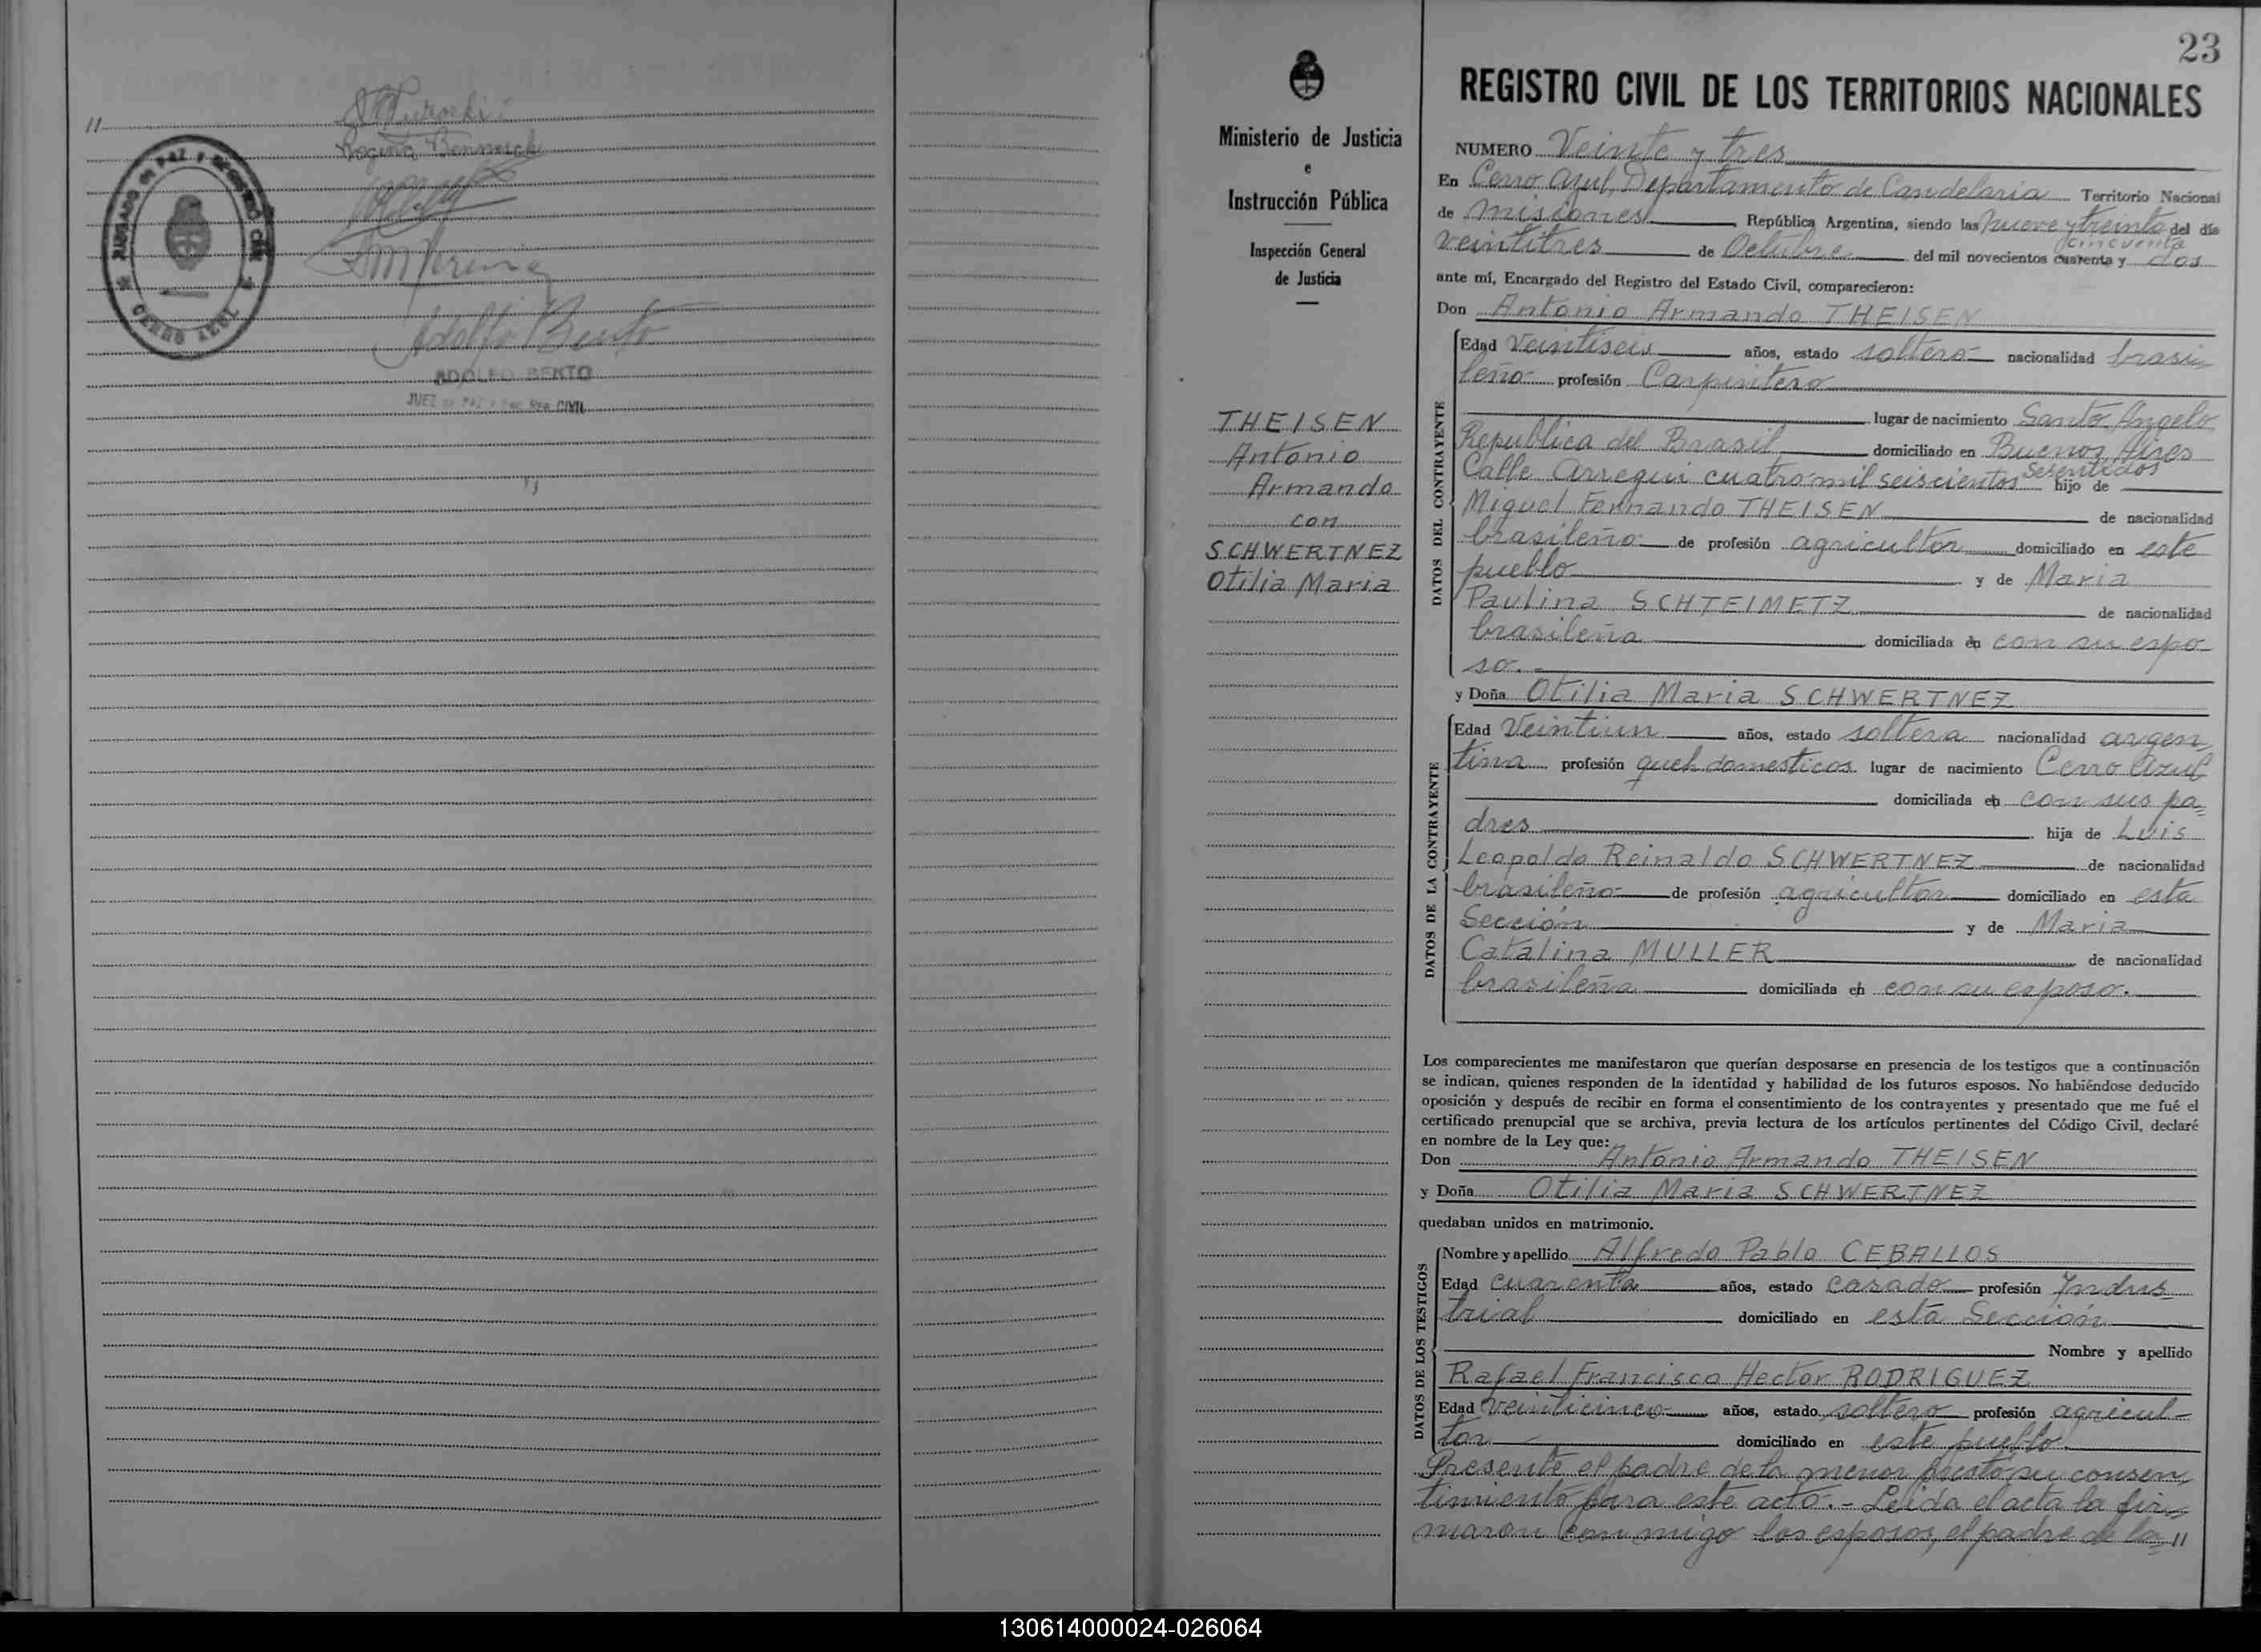 11
Rogina
JUZGADO DE PAZ Y REGISTRO CIVIL
CERRO AZUL
Adolfo Bento
ADOLFO BENTO
JUEZ DE PAZ Y ENC. REG. CIVIL
23
Ministerio de Justicia
e
Instrucción Pública
Inspección General
de Justicia
THEISEN
Antonio
Armando
con
SCHWERTNEZ
Otilia Maria
REGISTRO CIVIL DE LOS TERRITORIOS NACIONALES
NUMERO Veinte y tres
En Cerro Azul, Departamento de Candelaria Territorio Nacional
de Misiones República Argentina, siendo las nueve y treinta del día
cincuenta
veintitres de Octubre del mil novecientos cuarenta y dos
ante mí, Encargado del Registro del Estado Civil, comparecieron:
Don Antonio Armando THEISEN
DATOS DEL CONTRAYENTE
Edad Veintiseis años, estado soltero nacionalidad brasi
leño profesión Carpintero
lugar de nacimiento Santo Angelo
Republica del Brasil domiciliado en Buenos Aires
Calle Arregui cuatro mil seiscientos sesentidos hijo de
Miguel Fernando THEISEN de nacionalidad
brasileño de profesión agricultor domiciliado en este
pueblo y de Maria
Paulina SCHTEIMETZ de nacionalidad
brasileña domiciliada en con su espo
so.
y Doña Otilia Maria SCHWERTNEZ
DATOS DE LA CONTRAYENTE
Edad Veintiun años, estado soltera nacionalidad argen
tina profesión queh. domesticos lugar de nacimiento Cerro Azul
domiciliada en con sus pa=
dres hija de Luis
Leopoldo Reinaldo SCHWERTNEZ de nacionalidad
brasileño de profesión agricultor domiciliado en esta
Sección y de Maria
Catalina MULLER de nacionalidad
brasileña domiciliada en con su esposo.
Los comparecientes me manifestaron que querían desposarse en presencia de los testigos que a continuación
se indican, quienes responden de la identidad y habilidad de los futuros esposos. No habiéndose deducido
oposición y después de recibir en forma el consentimiento de los contrayentes y presentado que me fué el
certificado prenupcial que se archiva, previa lectura de los artículos pertinentes del Código Civil, declaré
en nombre de la Ley que:
Don Antonio Armando THEISEN
y Doña Otilia Maria SCHWERTNEZ
quedaban unidos en matrimonio.
DATOS DE LOS TESTIGOS
Nombre y apellido Alfredo Pablo CEBALLOS
Edad cuarenta años, estado casado profesión Indus
trial domiciliado en esta Sección
Nombre y apellido
Rafael Francisco Hector RODRIGUEZ
Edad veinticinco años, estado soltero profesión agricul-
tor domiciliado en este pueblo.
Presente el padre de la menor prestó su consen
timiento para este acto.- Leida el acta la fir
maron conmigo los esposos, el padre de la= 11
130614000024-026064